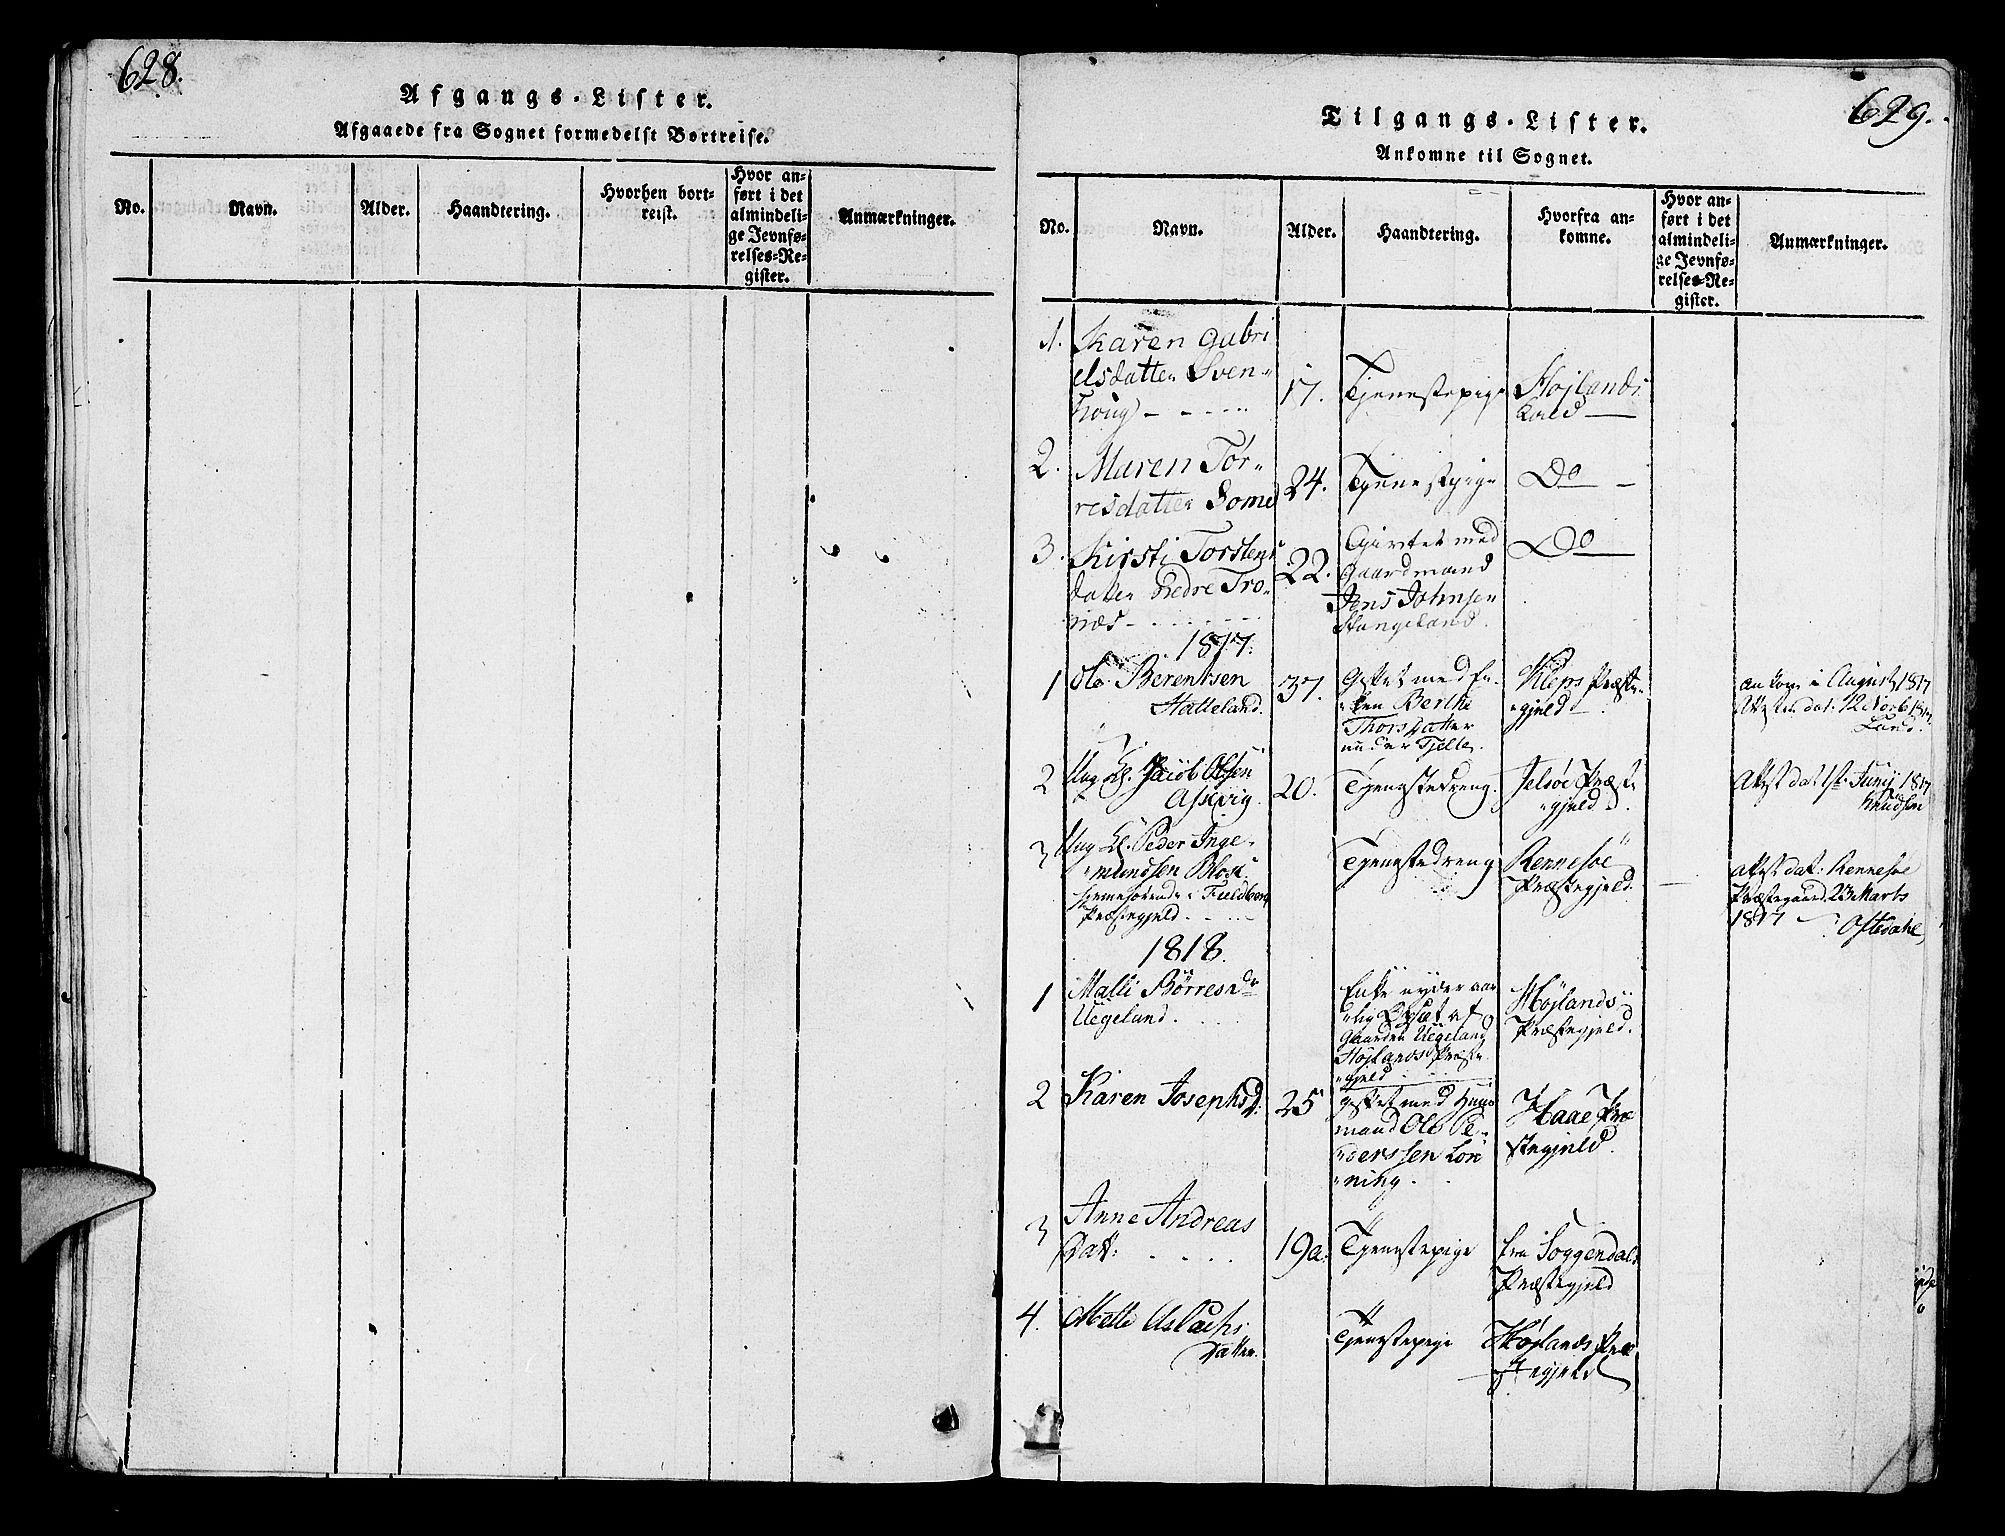 628.
Afgangs-Lister.
Afgaaede fra Sognet formedelst Bortreise.
No.
Navn.
Alder.
Haandtering.
Hvorhen bort-
reist.
Hvor an-
ført i det
almindeli-
ge Jevnfø-
relses-Re-
gister.
Anmærkninger.
629.
Tilgangs-Lister.
Ankomne til Sognet.
No.
Navn.
Alder.
Haandtering.
Hvorfra an-
komne.
Hvor an-
ført i det
almindeli-
ge Jevnfø-
relses-Re-
gister.
Anmærkninger.
1.
Karen Gabri
elsdatter Sven-
houg
17.
Tjenestepige
Højlands
Kald
2.
Maren Tør-
resdatter Somd
24.
Tjenestpige
Do
3.
Kirsti Torstens
datter Nedre Tro-
næs
22.
Giftet med
Gaardmand
Jens Johnsen
Stangeland.
Do
1817.
1
Ole Berentsen
Hatteland.
37.
Giftet med En-
ken Berthe
Thorsdatter
under Tjelte.
Kleps Præste-
gjeld
ankom i August 1817
Attesten dat: 12 Novb 1817.
Lund.
2
Ung K. Jacob Olsen
Askvig.
20.
Tjenestedreng.
Jelsøe Præste
gjeld
Attest dat 1ste Junij 1817
Knudsen
3
Ung K. Peder Inge-
mundsen
Præstegjeld
Tjenestedreng
Rennesøe
Præstegjeld.
Attest dat: Rennesøe
Præstegaard 23 Marts
1817
Oftedahl
1818.
1
Malli Børresd
Uegeland.
Enke nyder aar
lig af
Gaarden Uegeland
Højlands Præste
gjeld
Højlands
Præstegjeld.
2
Karen Josephsd:
25
giftet med Huus
mand Ole Pe-
derssen Lon
ning.
Haae Præ
stegjeld.
3
Anne Andreas
Datt:
19a.
Tjenestepige
fra Soggendals
Præstegjeld
4.
Mette Aslachs
Datter.
Tjenestepige
Højlands Præ
stegjeld